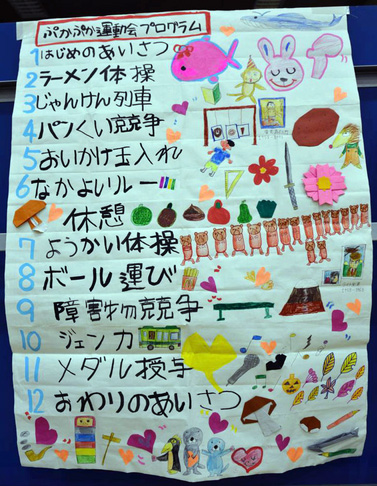 ぷかぷか運動会プログラム
1 はじめのあいさつ
2 ラーメン体操
3 じゃんけん列車
4 パンくい競争
5 おいかけ玉入れ
6 なかよしリレー
休憩
7 ようかい体操
8 ボール運び
9 障害物競争
10 ジェンカ
11 メダル授与
12 おわりのあいさつ